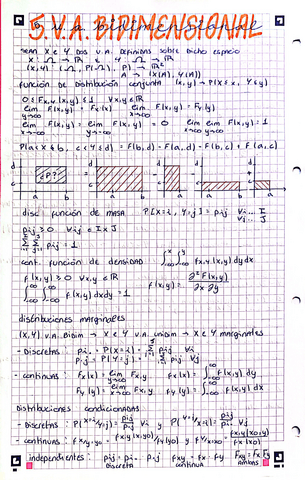 5. V.A. BIDIMENSIONAL
sean X e Y dos v.a. definidas sobre dicho espacio
X : Ω → ℝ , Y : Ω → ℝ
(X,Y) : (Ω, P(Ω), P) → ℝ²
A → (X(A), Y(A))
función de distribución conjunta (x,y) → P(X≤x, Y≤y)
0 ≤ Fx,y(x,y) ≤ 1 ∀x,y ∈ ℝ
lim F(x,y) = Fx(x) lim F(x,y) = Fy(y)
y→∞ x→∞
lim F(x,y) = lim F(x,y) = 0 lim lim F(x,y) = 1
P(a<X≤b, c<Y≤d) = F(b,d) - F(a,d) - F(b,c) + F(a,c)
d d d d d
c ¿P? c c c c
a b a b a b a b a b
disc. función de masa P[X=i, Y=j] = pij
pij ≥ 0 ∀i,j ∈ I×J
Σ Σ pij = 1
cont. función de densidad ∫∫ fx,y(x,y) dy dx
f(x,y) ≥ 0 ∀x,y ∈ ℝ
∫∫ f(x,y) dxdy = 1 f(x,y) = ∂²F(x,y) / ∂x ∂y
distribuciones marginales
(X,Y) v.a. bidim → X e Y v.a. unidim → X e Y marginales
- discretas : pi. = P(X=i) = Σ pij ∀i
p.j = P(Y=j) = Σ pij ∀j
- continuas : Fx(x) = lim Fx,y fx(x) = ∫ f(x,y) dy
Fy(y) = lim Fx,y fy(y) = ∫ f(x,y) dx
distribuciones condicionadas
- discretas : P(X=i/Y=j) = pij/p.j ∀i y P(Y=j/X=i) = pij/pi. ∀j
- continuas : f x/y=y0 = fx,y(x,y0)/fy(y0) y f y/x=x0 = fx,y(x0,y)/fx(x0)
independientes : pij = pi. · p.j fxy = fx · fy Fxy = Fx Fy
discreta continua ambas